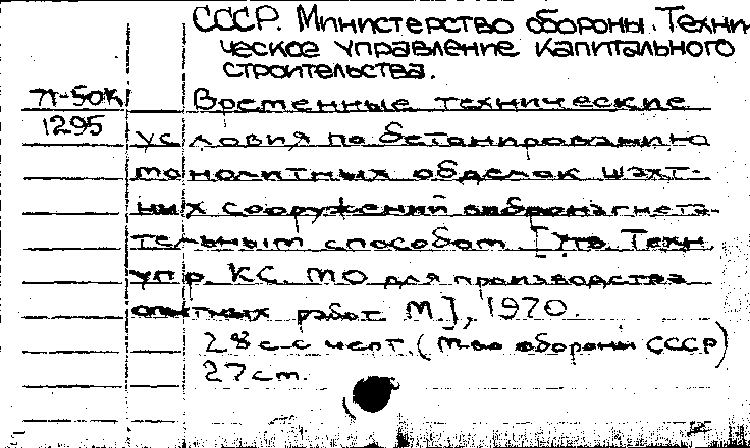 СССР. Министерство обороны. Техни-
ческое управление капитального
строительства.
71-50К Временные технические
1295 условия по бетонированию
монолитных обделок шахт-
ных сооружений вибронагнета-
тельным способом. [Утв. Техн.
упр. КС. МО для производства
опытных работ М.], 1970.
28 с. с черт. (М-во обороны СССР)
27 см.